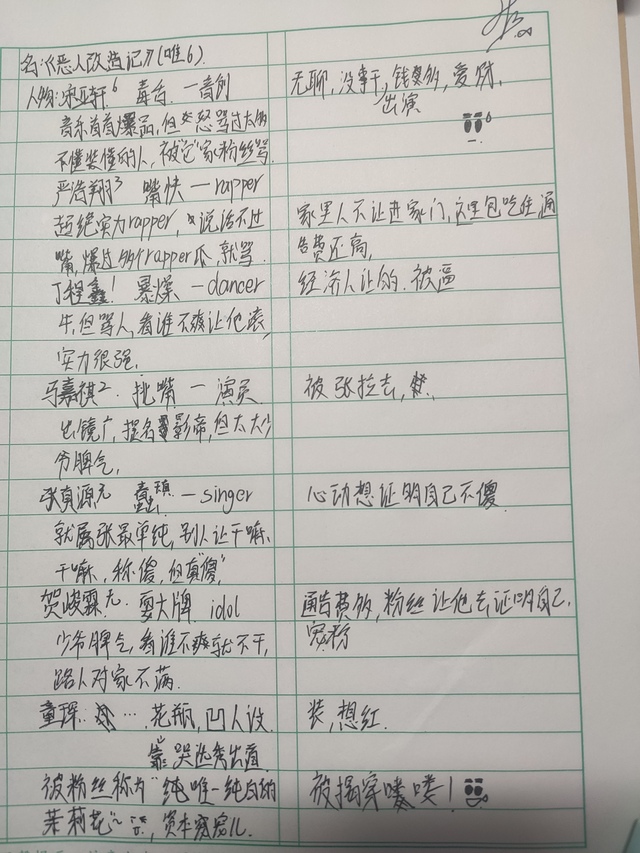 名:《恶人改造记》(唯6).
人物:宋亚轩6 毒舌.一音创 无聊,没事干,钱多,爱财.
出演
音乐首首爆品,但怒骂过太多
不懂装懂的人,被"它"家粉丝骂.
严浩翔3 嘴快—rapper
超绝实力rapper,说话不过 家里人不让进家门,这里包吃住,通
嘴,爆过多个rapper瓜,就骂. 告费还高,
丁程鑫1 暴燥—dancer 经济人让的.被逼
牛,但骂人,看谁不爽让他滚,
实力很强.
马嘉祺2. 挑嘴—演员 被张拉去,
出镜广,提名影帝,但大大少
爷脾气.
张真源元 蠢 —singer 心动想证明自己不傻
就属张最单纯,别人让干嘛.
干嘛,称傻,但真"傻",
贺峻霖九.耍大牌.idol 通告费多,粉丝让他去证明自己.
少爷脾气,看谁不爽就不干, 宠粉
路人对家不满.
童琛.… 花瓶,凹人设. 装,想红.
靠哭
被粉丝称为"纯唯一纯白的 被揭穿喽喽!
茉莉花~",资本